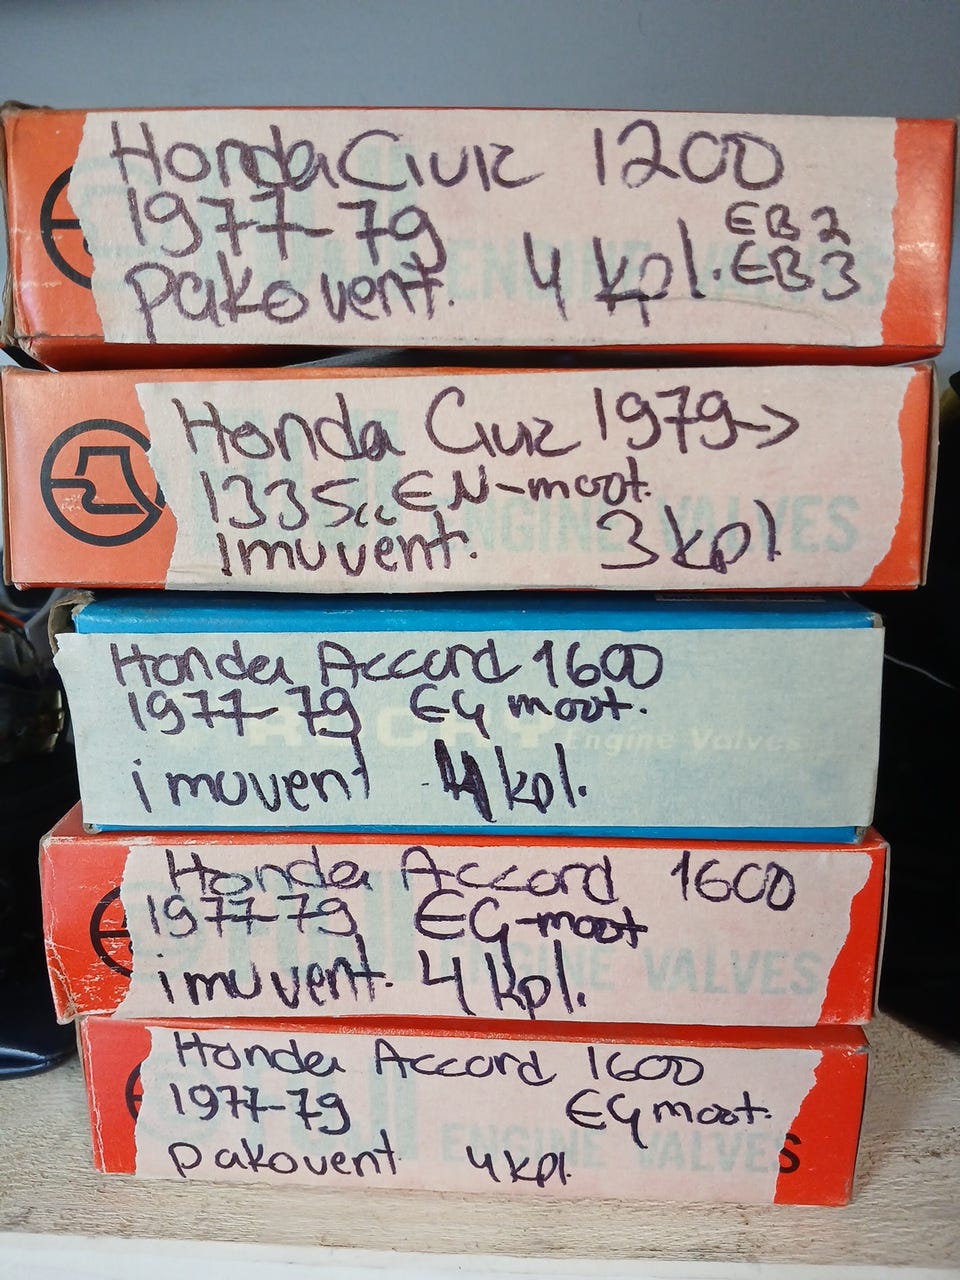 Honda Civic 1200
1977-79 EB2
pakovent. 4 kpl. EB3
ENGINE VALVES
Honda Civic 1979->
1335cc EN-moot.
imuvent. 3 kpl
ENGINE VALVES
Honda Accord 1600
1977-79 EG moot.
ROCKY Engine Valves
imuvent 4 kpl.
Honda Accord 1600
1977-79 EG-moot
imuvent. 4 kpl.
ENGINE VALVES
Honda Accord 1600
1977-79 EG moot.
pakovent 4 kpl.
ENGINE VALVES